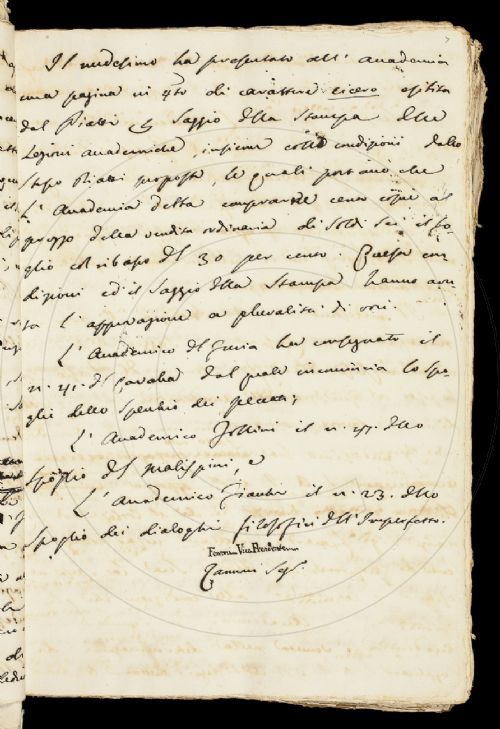 Il medesimo ha presentato all' Academia
una pagina in 4to di carattere cicero esibita
dal Piatti p Saggio della Stampa delle
Lezioni Accademiche, insieme colle condizioni dallo
stesso Piatti proposte, le quali portano che
L' Academia debba comprarne cento copie al
prezzo della vendita ordinaria di Soldi sei il fo-
glio col ribasso del 30 per cento. Queste con
dizioni ed il Saggio della Stampa hanno avu
ta l' approvazione a pluralità di voti.
L' Academico del Furia ha consegnato il
n. 41. del Cavalca dal quale incomincia lo spo
glio dello Specchio dei peccati;
L' Academico il n. 47. dello
Spoglio del Malispini, e
L' Academico il n. 23. dello
Spoglio dei dialoghi filosofici dell' Imperfetto.
Vice Presidente
Zannoni Seg.